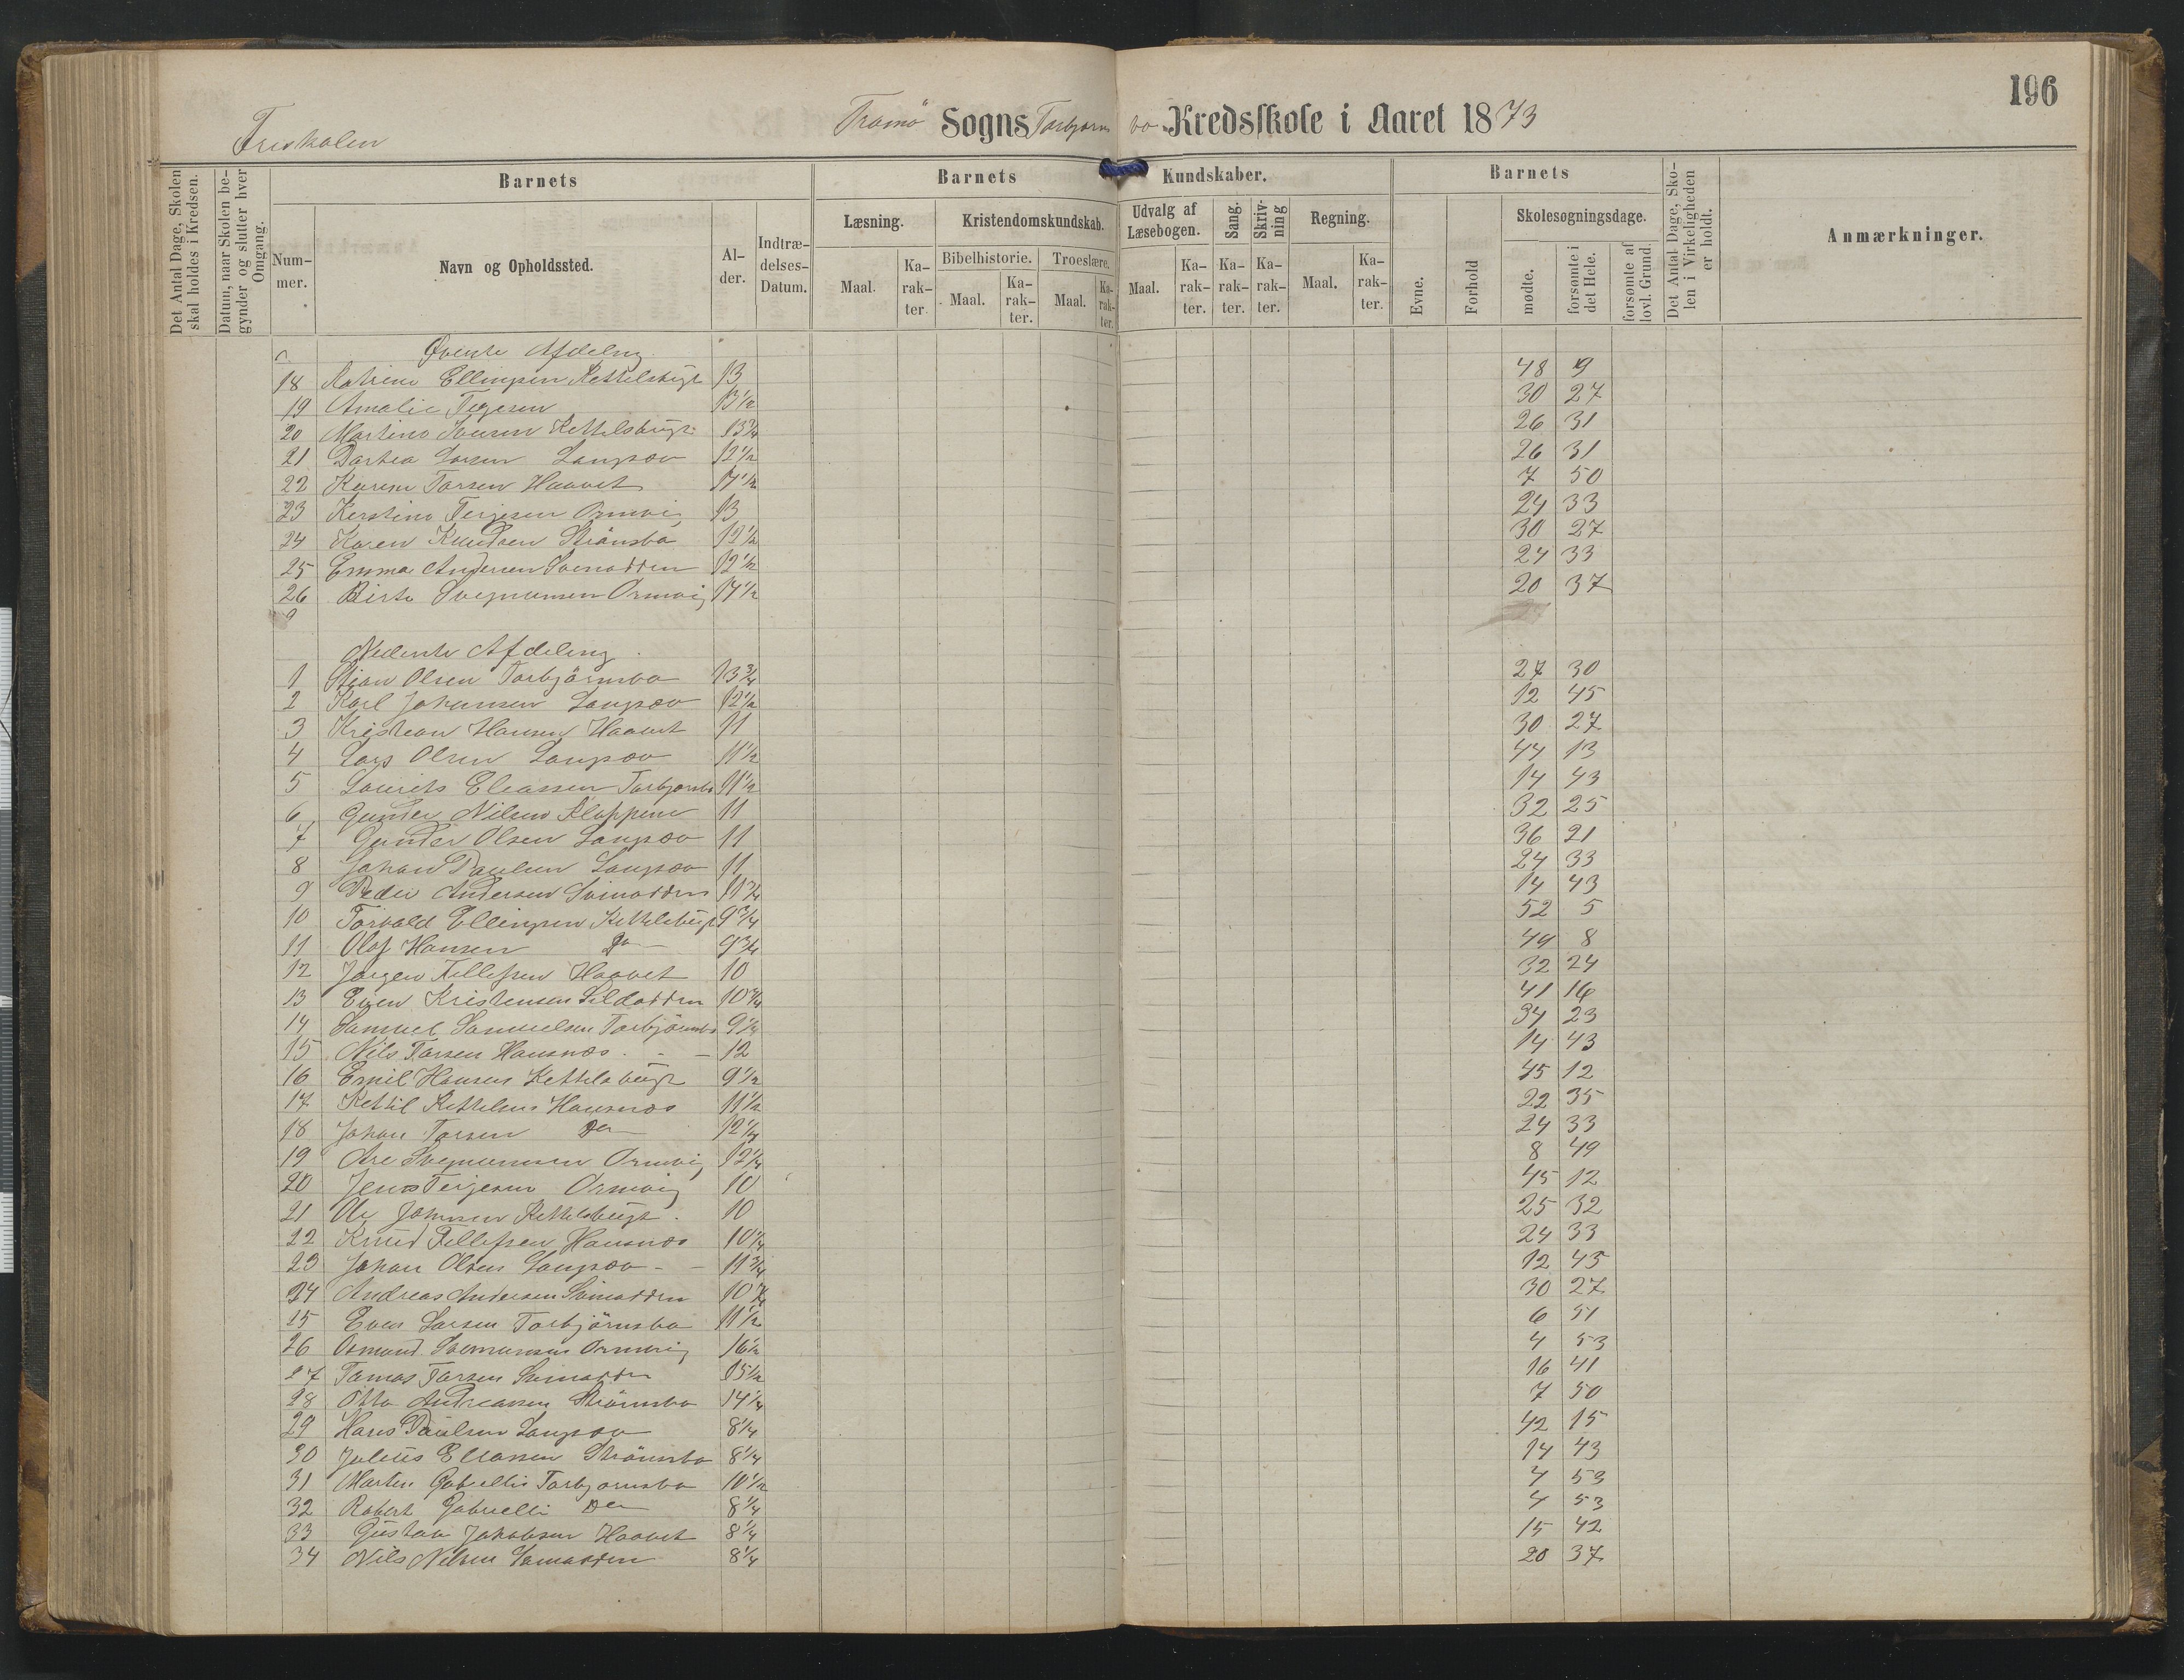 196
Friskolen
Tromö Sogns Torbjørns bo Kredsskole i Aaret 1873
Det Antal Dage, Skolen skal holdes i Kredsen.
Datum, naar Skolen begynder og slutter hver Omgang.
Barnets
Nummer.
Navn og Opholdssted.
Alder.
Indtrædelses-Datum.
Barnets Kundskaber.
Læsning.
Maal.
Karakter.
Kristendomskundskab.
Bibelhistorie.
Maal.
Karakter.
Troeslære.
Maal.
Karakter.
Udvalg af Læsebogen.
Maal.
Karakter.
Sang.
Karakter.
Skrivning
Karakter.
Regning.
Maal.
Karakter.
Barnets
Evne.
Forhold
Skolesøgningsdage.
mødte.
forsømte i det Hele.
forsømte af lovl. Grund.
Det Antal Dage, Skolen i Virkeligheden er holdt.
Anmærkninger.
Øverste Afdeling
18 Katrine Ellingsen Kettelsbugt 13 48 9
19 Amalie Terjesen 13½ 30 27
20 Martine Iversen Kettelsbugt 13¾ 26 31
21 Dorthea Larsen Langsæv 12½ 26 31
22 Karen Torsen Haavet 14½ 7 50
23 Kerstine Terjesen Ormvig 13 24 33
24 Karen Knudsen Strömsbo 12½ 30 27
25 Emma Andersen Svinodden 12½ 24 33
26 Birte Svennumsen Ormvig 14½ 20 37
9
Nederste Afdeling
1 Stian Olsen Torbjörnsbo 13¾ 27 30
2 Karl Johansen Langsæv 12½ 12 45
3 Kristian Hansen Haavet 11 30 27
4 Lars Olsen Langsæv 11½ 44 13
5 Laurits Eleassen Torbjørnsbo 11½ 14 43
6 Gunder Nilsen Kloppene 11 32 25
7 Gunder Olsen Langsæv 11 36 21
8 Johan Paulsen Langsæv 11 24 33
9 Peder Andersen Svinodden 11¾ 14 43
10 Torvald Ellingsen Kettelsbugt 9¾ 52 5
11 Olaf Hansen Do — 9¾ 49 8
12 Jørgen Tellefsen Haavet 10 32 24
13 Even Kristensen Sildodden 10¾ 41 16
14 Samuel Samuelsen Torbjörnsbo 9¼ 34 23
15 Nils Torsen Hausnæs - — 12 14 43
16 Emil Hansen Kettelsbugt 9½ 45 12
17 Kettil Kettelsen Hausnæs 11½ 22 35
18 Johan Torsen Do — 12¼ 24 33
19 Are Svennumsen Ormvig 12¼ 8 49
20 Jens Terjesen Ormvig 10 45 12
21 Ole Johnsen Kettelsbugt 10 25 32
22 Knud Tellefsen Hausnæs 10¼ 24 33
23 Johan Olsen Langsæv - - 11¾ 12 45
24 Andreas Andersen Svinodden 10¾ 30 27
25 Even Larsen Torbjörnsbo 11½ 6 51
26 Osmund Svennumsen Ormvig 16½ 4 53
27 Tomas Torsen Svinodden 15½ 16 41
28 Otto Andreassen Strömsbo 14¼ 7 50
29 Hans Paulsen Langsæv 8¼ 42 15
30 Julius Eliassen Strömsbo 8¼ 14 43
31 Morten Gabrelli Torbjörnsbo 10½ 4 53
32 Robert Gabrielli Do — 8¼ 4 53
33 Gustav Jakobsen Haavet 8¼ 15 42
34 Nils Nelsen Svinodden 8¼ 20 37